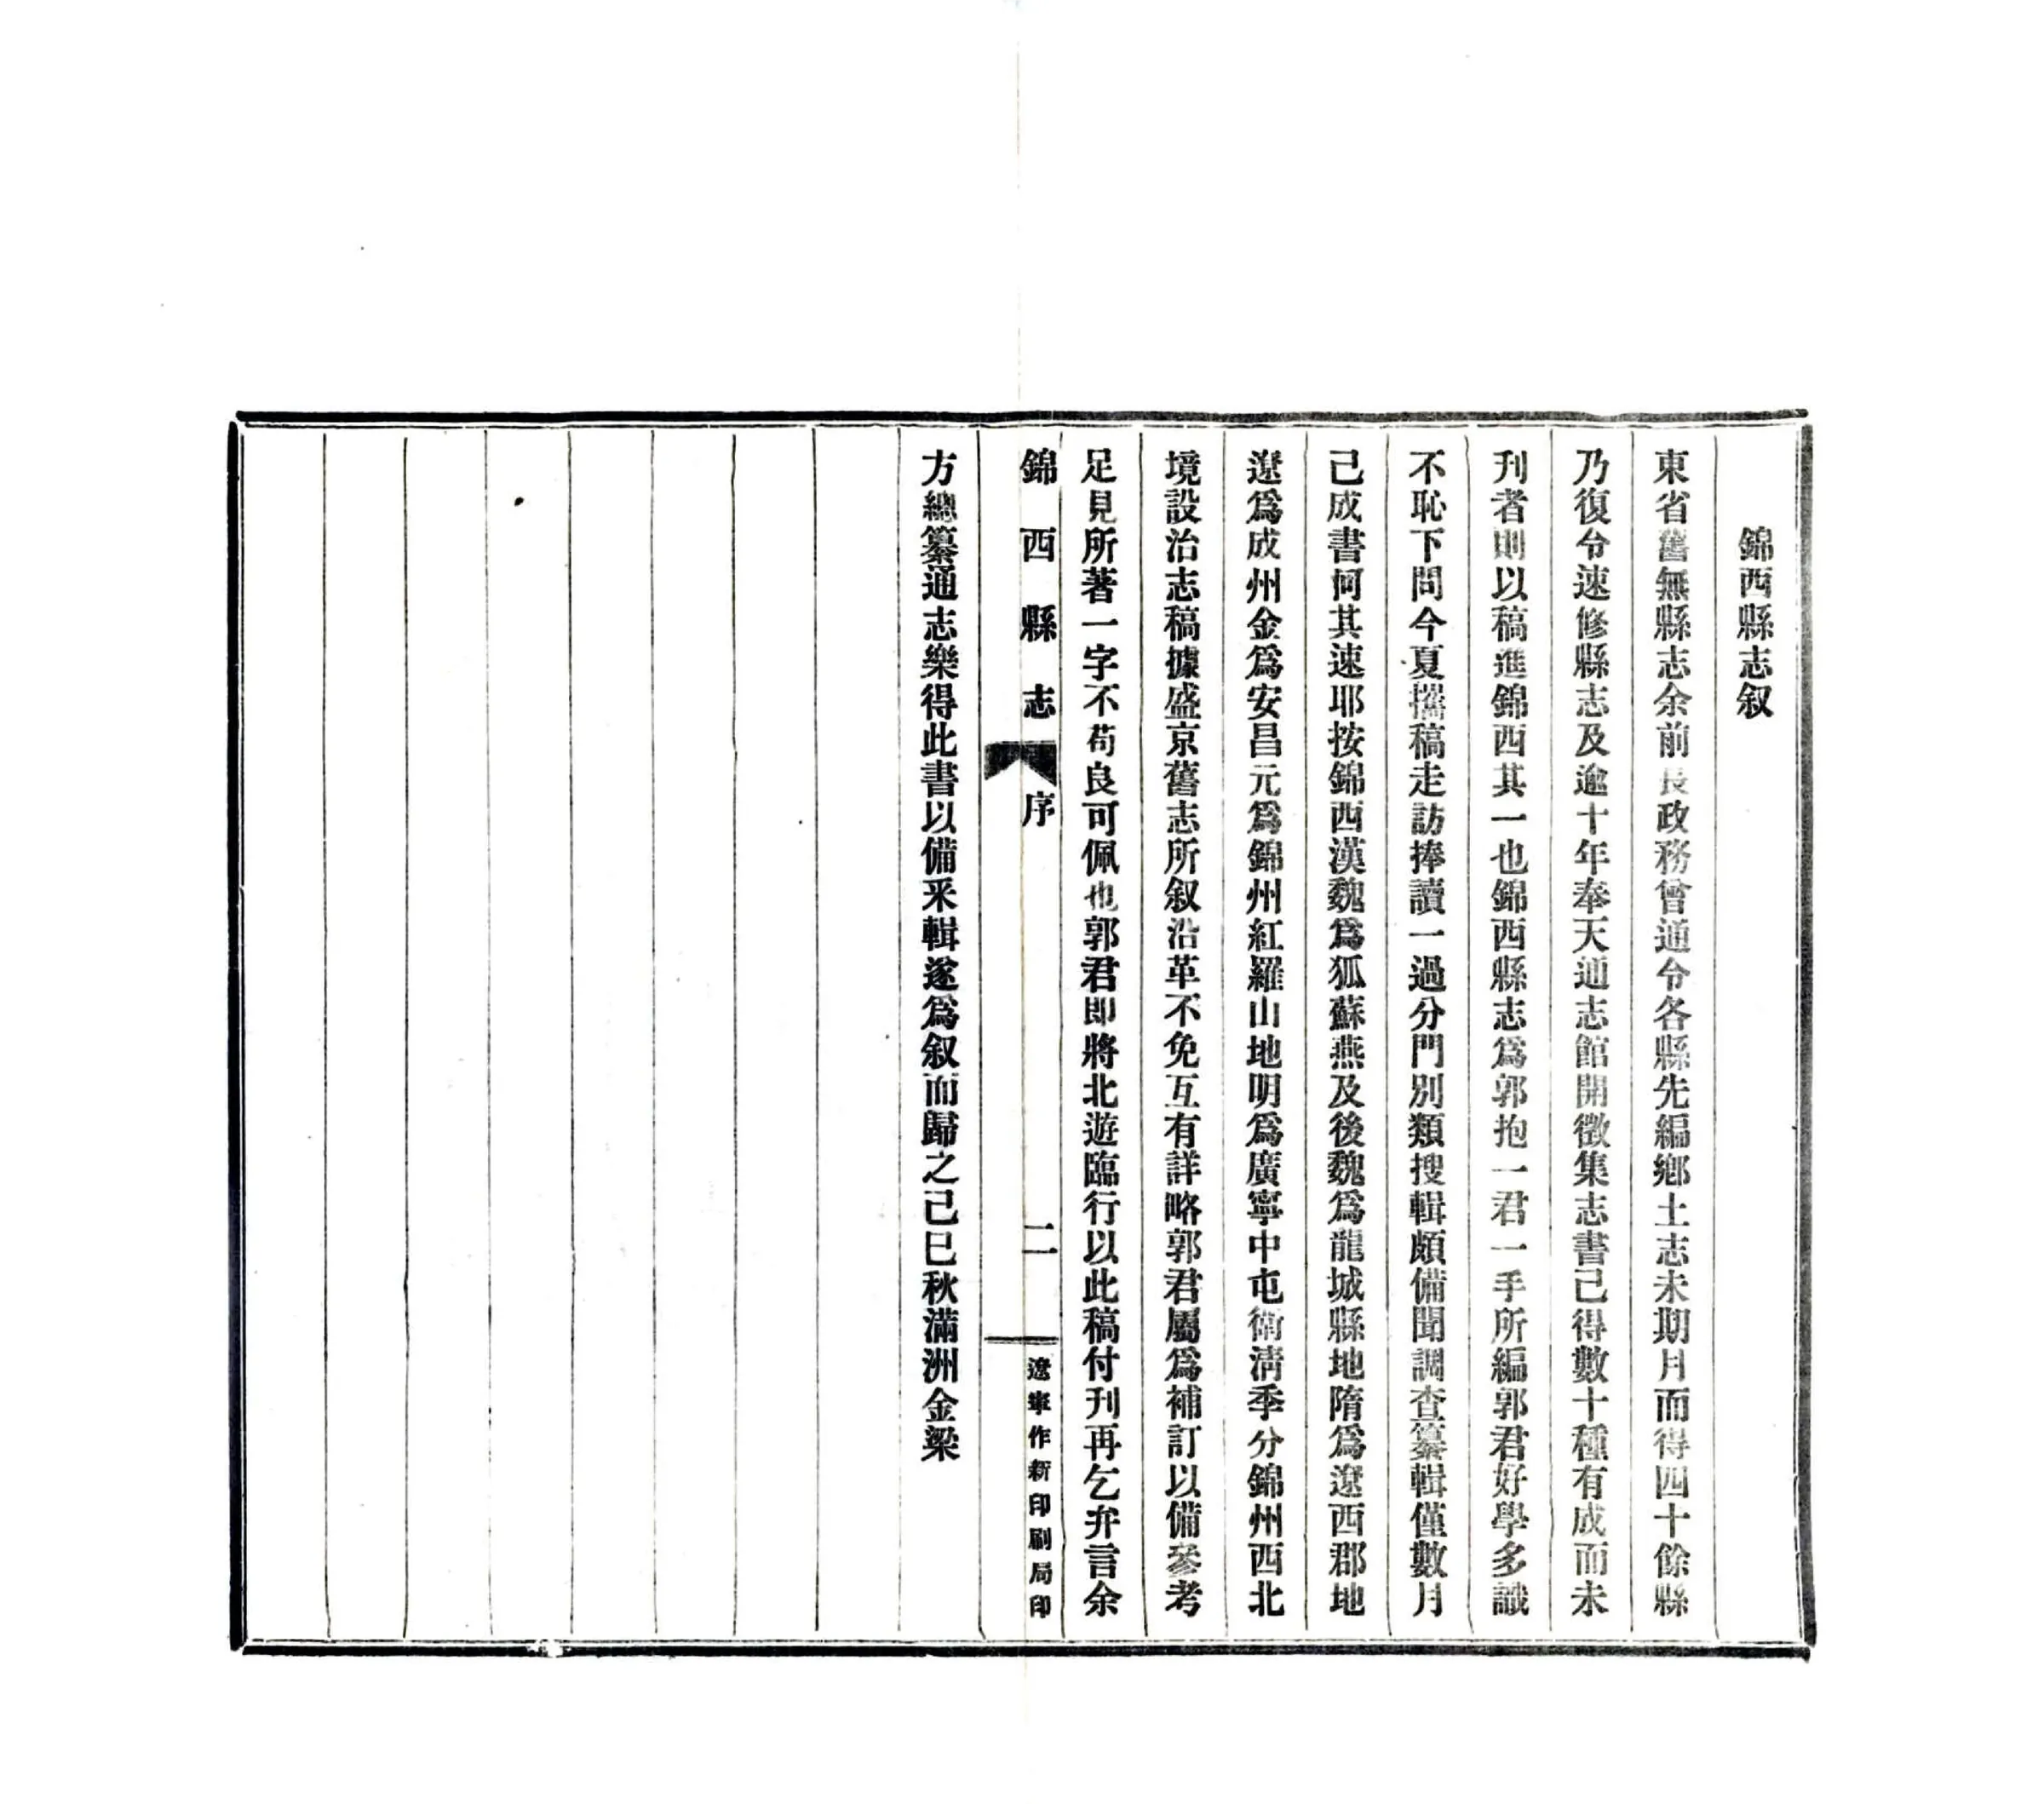 錦西縣志叙
東省舊無縣志余前長政務曾通令各縣先編鄉土志未期月而得四十餘縣
乃復令速修縣志及逾十年奉天通志館開徵集志書已得數十種有成而未
刊者則以稿進錦西其一也錦西縣志爲郭抱一君一手所編郭君好學多識
不恥下問今夏攜稿走訪捧讀一過分門別類搜輯頗備聞調查纂輯僅數月
己成書何其速耶按錦西漢魏爲狐蘇燕及後魏爲龍城縣地隋爲遼西郡地
遼爲成州金爲安昌元爲錦州紅羅山地明爲廣寧中屯衛淸季分錦州西北
境設治志稿據盛京舊志所叙沿革不免互有詳略郭君屬爲補訂以備參考
足見所著一字不苟良可佩也郭君即將北遊臨行以此稿付刊再乞弁言余
錦西縣志
序
二
遼寧作新印刷局印
方總纂通志樂得此書以備釆輯遂爲叙而歸之己巳秋滿洲金梁